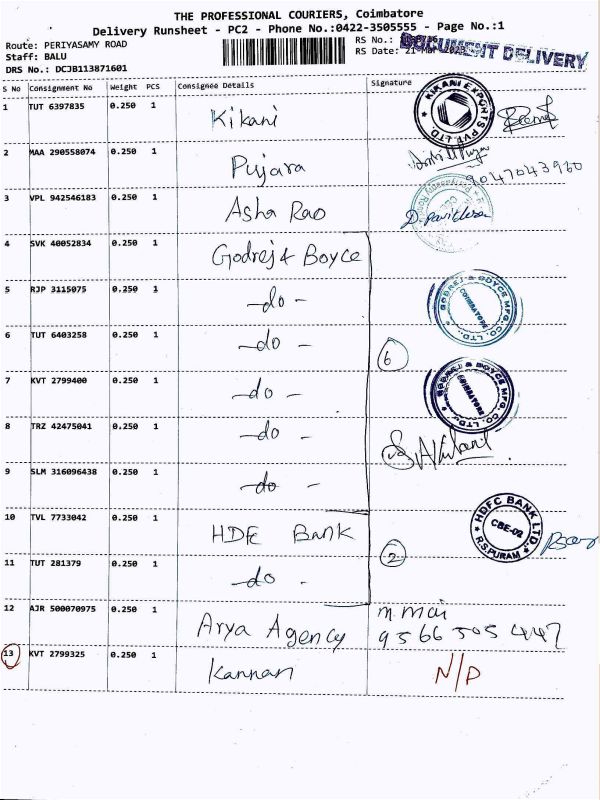 THE PROFESSIONAL COURIERS, Coimbatore
Delivery Runsheet - PC2 - Phone No.:0422-3505555 - Page No.:1
Route: PERIYASAMY ROAD
RS No.:
DOCUMENT DELIVERY
Staff: BALU
RS Date: 21-Mar-2023
DRS No.: DCJB113871601
S No Consignment No Weight PCS Consignee Details Signature
1 TUT 6397835 0.250 1 Kikani
KIKANI EXPORTS PVT. LTD
2 MAA 290558074 0.250 1 Pujara
9047043960
3 VPL 942546183 0.250 1 Asha Rao
4 SVK 40052834 0.250 1 Godrej & Boyce
5 RJP 3115075 0.250 1 -do-
GODREJ & BOYCE MFG. CO. LTD.
COIMBATORE
6 TUT 6403258 0.250 1 -do-
6
7 KVT 2799400 0.250 1 -do-
GODREJ & BOYCE MFG. CO. LTD.
COIMBATORE
8 TRZ 42475041 0.250 1 -do-
9 SLM 316096438 0.250 1 -do-
10 TVL 7733042 0.250 1 HDFC Bank
HDFC BANK LTD.
CBE-02
R.S.PURAM
2
11 TUT 281379 0.250 1 -do-
12 AJR 500070975 0.250 1 Arya Agency
9566505447
13 KVT 2799325 0.250 1 Kannan N/D